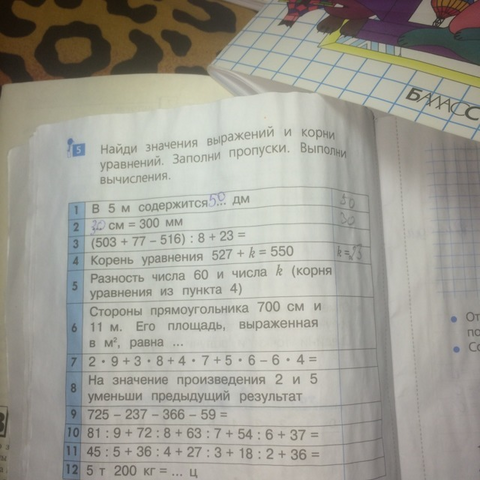 БАЛАСС
5 Найди значения выражений и корни
уравнений. Заполни пропуски. Выполни
вычисления.
1 В 5 м содержится 50 дм 50
2 30 см = 300 мм 30
3 (503 + 77 – 516) : 8 + 23 =
4 Корень уравнения 527 + k = 550 k=23
5 Разность числа 60 и числа k (корня
уравнения из пункта 4)
6 Стороны прямоугольника 700 см и
11 м. Его площадь, выраженная
в м², равна ...
7 2 · 9 + 3 · 8 + 4 · 7 + 5 · 6 – 6 · 4 =
8 На значение произведения 2 и 5
уменьши предыдущий результат
9 725 – 237 – 366 – 59 =
10 81 : 9 + 72 : 8 + 63 : 7 + 54 : 6 + 37 =
11 45 : 5 + 36 : 4 + 27 : 3 + 18 : 2 + 36 =
12 5 т 200 кг = ... ц